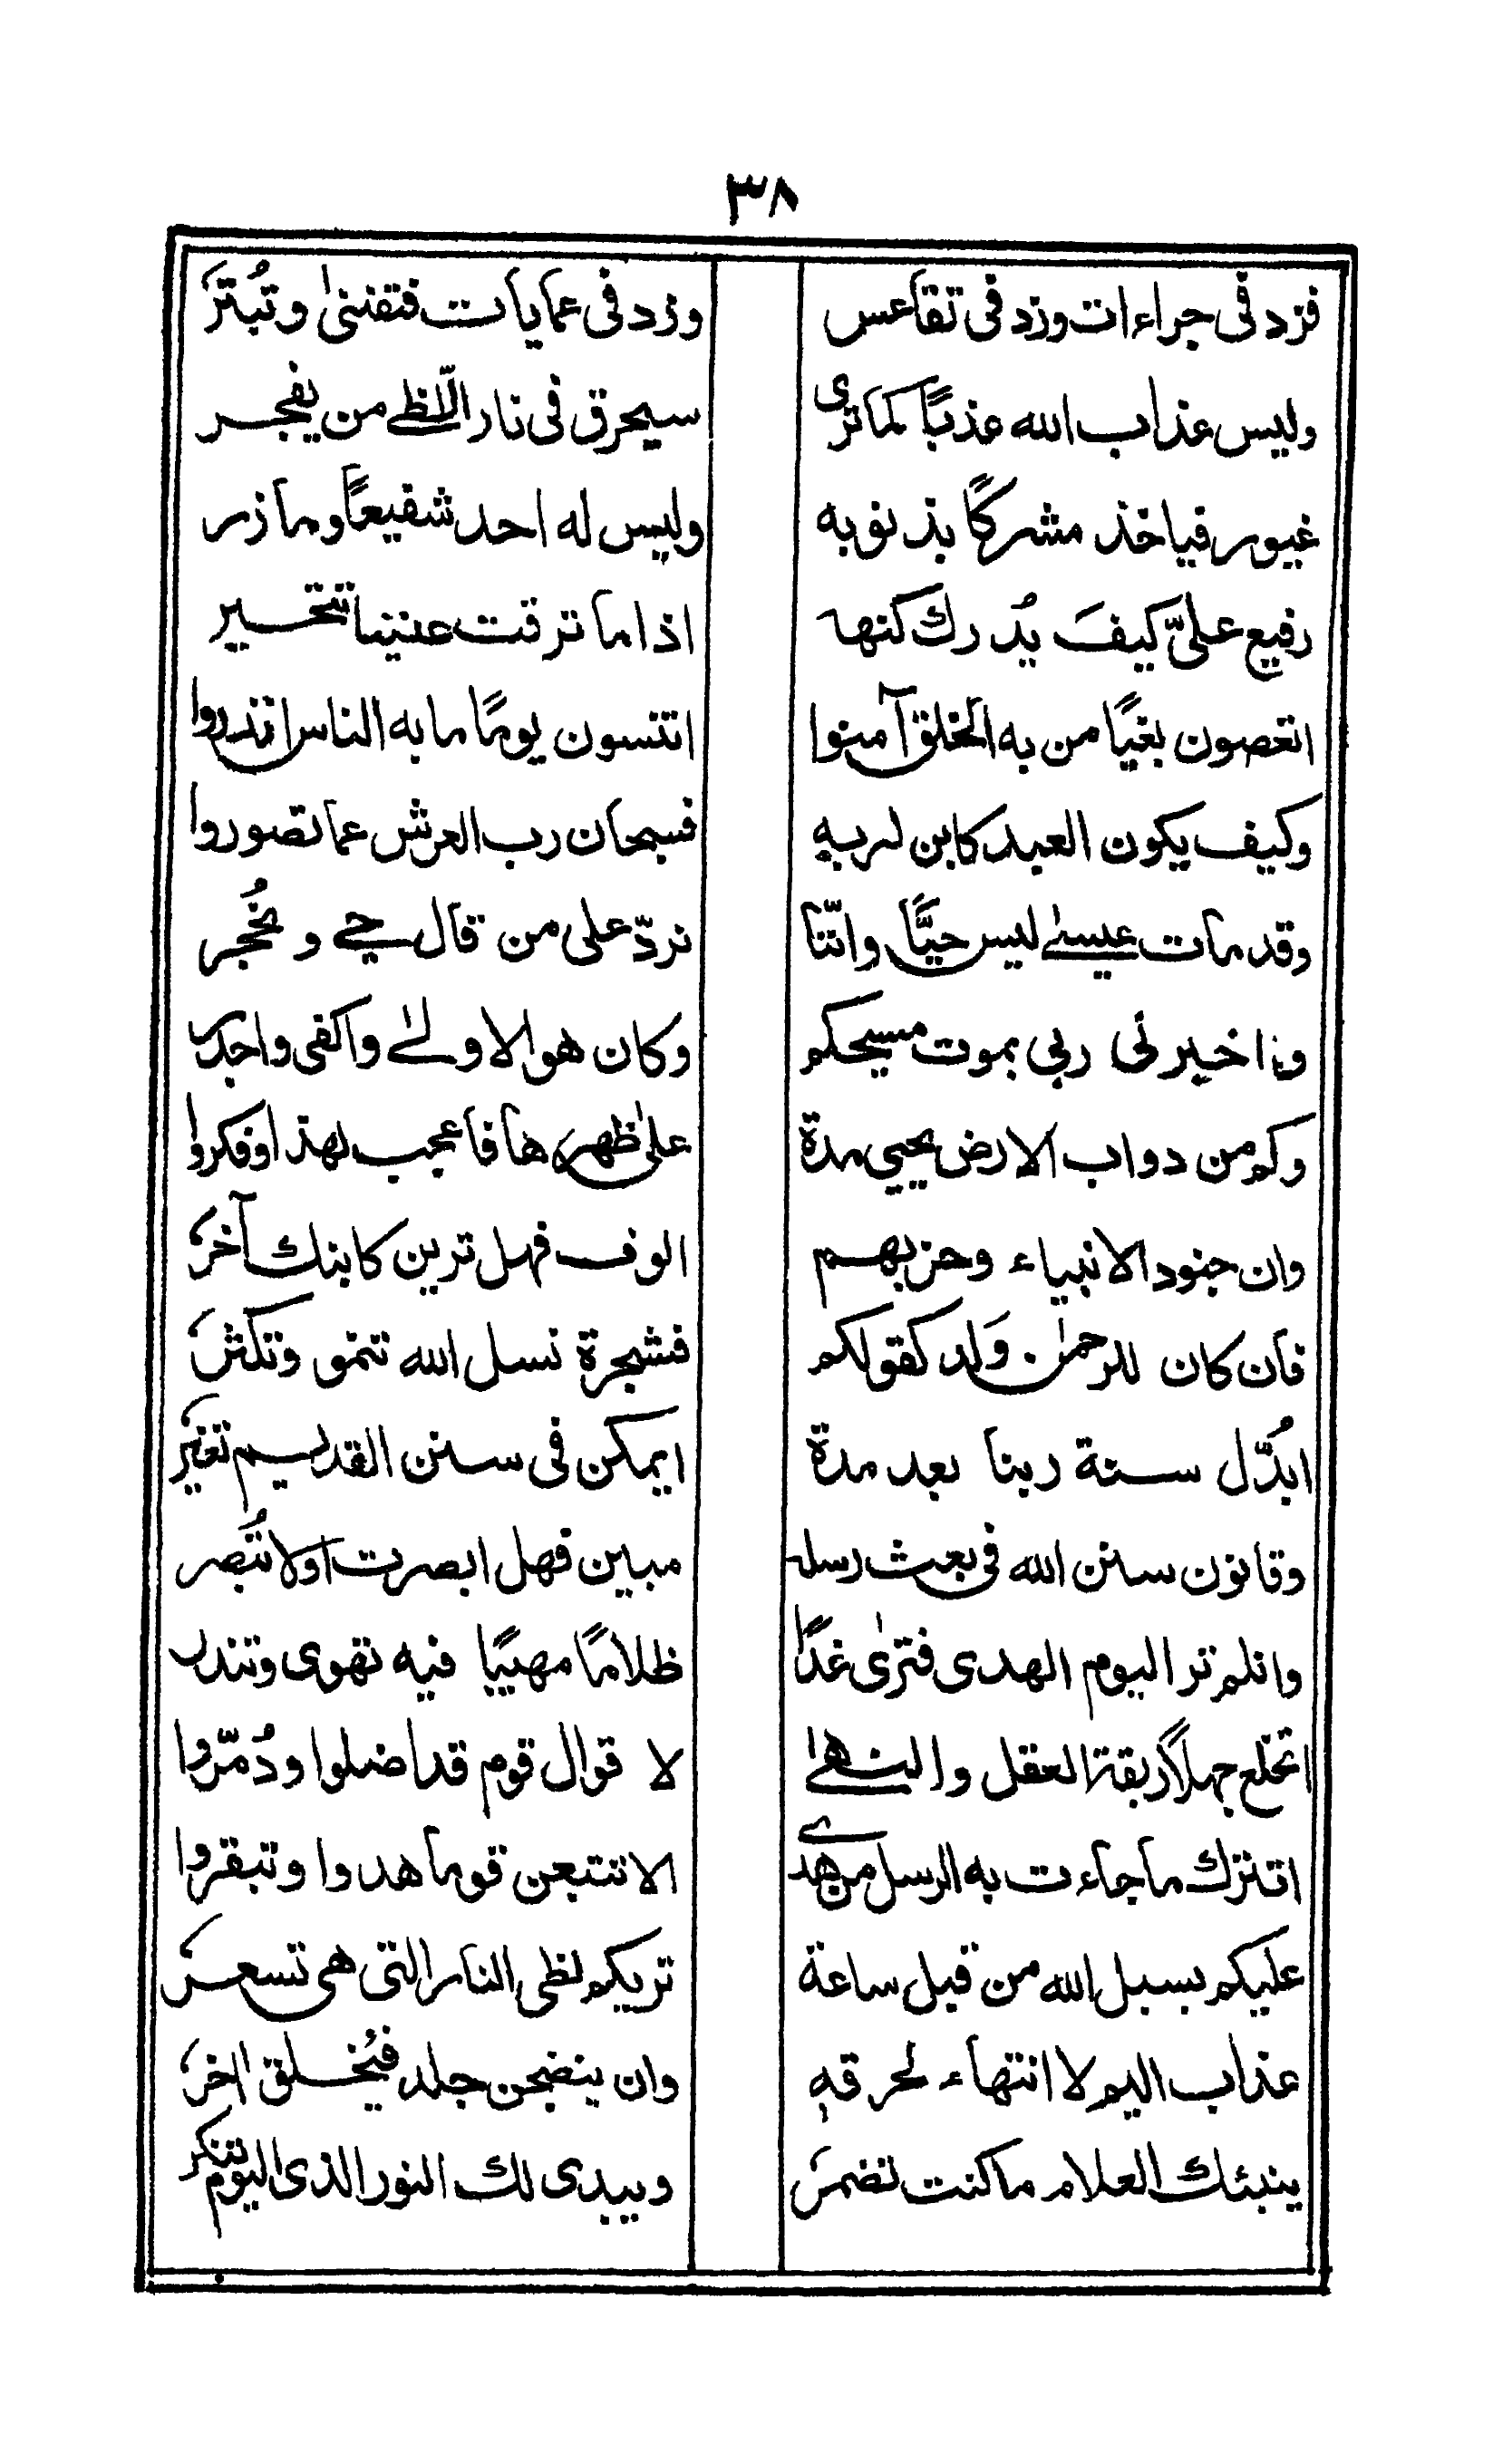 ٣٨
فزد فی جراءات وزد فی تقاعس وزد فی عمایات فتفنیٰ وتُبترَ
ولیس عذاب الله عذبًا کما تری سیحرق فی نار اللّظے من یفجر
غیور فیاخذ مشرکًا بذنوبه ولیس له احد شفیعًا ومازر
رفیع علیّ کیفَ یُدرك کنهه اذا ما ترقت عنینا تتحسیر
اتعصون بغیًا من به الخلق آمنوا اتنسون یومًا ما به الناس انذروا
وکیف یکون العبد کابن لربهٖ فسبحان رب العرش عما تصوروا
وقد مات عیسیٰ لیس حیًّا وانّنا نردّ علی من قال حے ونُحجر
وذا خیر لی ربی بموت مسیحکم وکان هو الاولےٰ واکفی واجدر
وکم من دواب الارض یحیی مدة علیٰ ظهرها فاعجب لهذا وفکروا
وان جنود الانبیاء وحزبهم الوف فهل ترین کابنك آخرَ
فان کان للرحمٰن وَلد کقولکم فشجرة نسل الله تنمو وتکثرَ
ابُدّل سنة ربنا بعد مدة ایمکن فی سنن القدیم تغیرَ
وقانون سنن الله فی بعث رسله مبین فهل ابصرت اولا تُبصر
وانلم تر الیوم الهدی فتریٰ غدًا ظلامًا مهیبًا فیه تهوی وتندر
اتخلع جهلًا ربقة العقل والنهےٰ لا قوال قوم قد اضلوا ودُمّروا
اتترك ماجاءت به الرسل من هدے الا تتبعن قوما هدوا وتبقروا
علیکم بسبل الله من قبل ساعة تریکم لظی النار التی هی تسعرَ
عذاب الیم لا انتهاء لحرقهٖ وان ینضجن جلد فیُخلق اٰخرَ
ینبئك العلام ما کنت تضمرَ ویبدی لك النور الذی الیوم تنکر